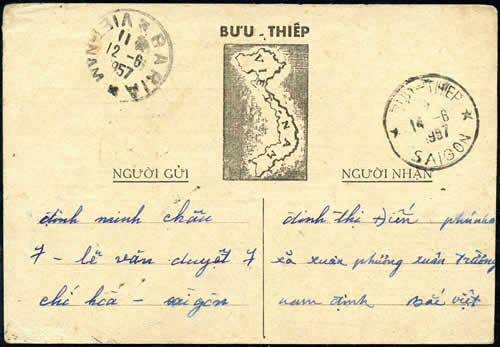 BƯU - THIẾP
BARIA ★ VIETNAM ★
11
12-6
1957
BƯU-THIẾP
14-6
1957
★ SAIGON ★
VIỆT NAM
NGƯỜI GỬI
đinh minh châu
7 - lê văn duyệt 7
chí hoà - saigon
NGƯỜI NHẬN
đinh thị Điến phú nha
xã xuân phương xuân trường
nam định Bắc việt